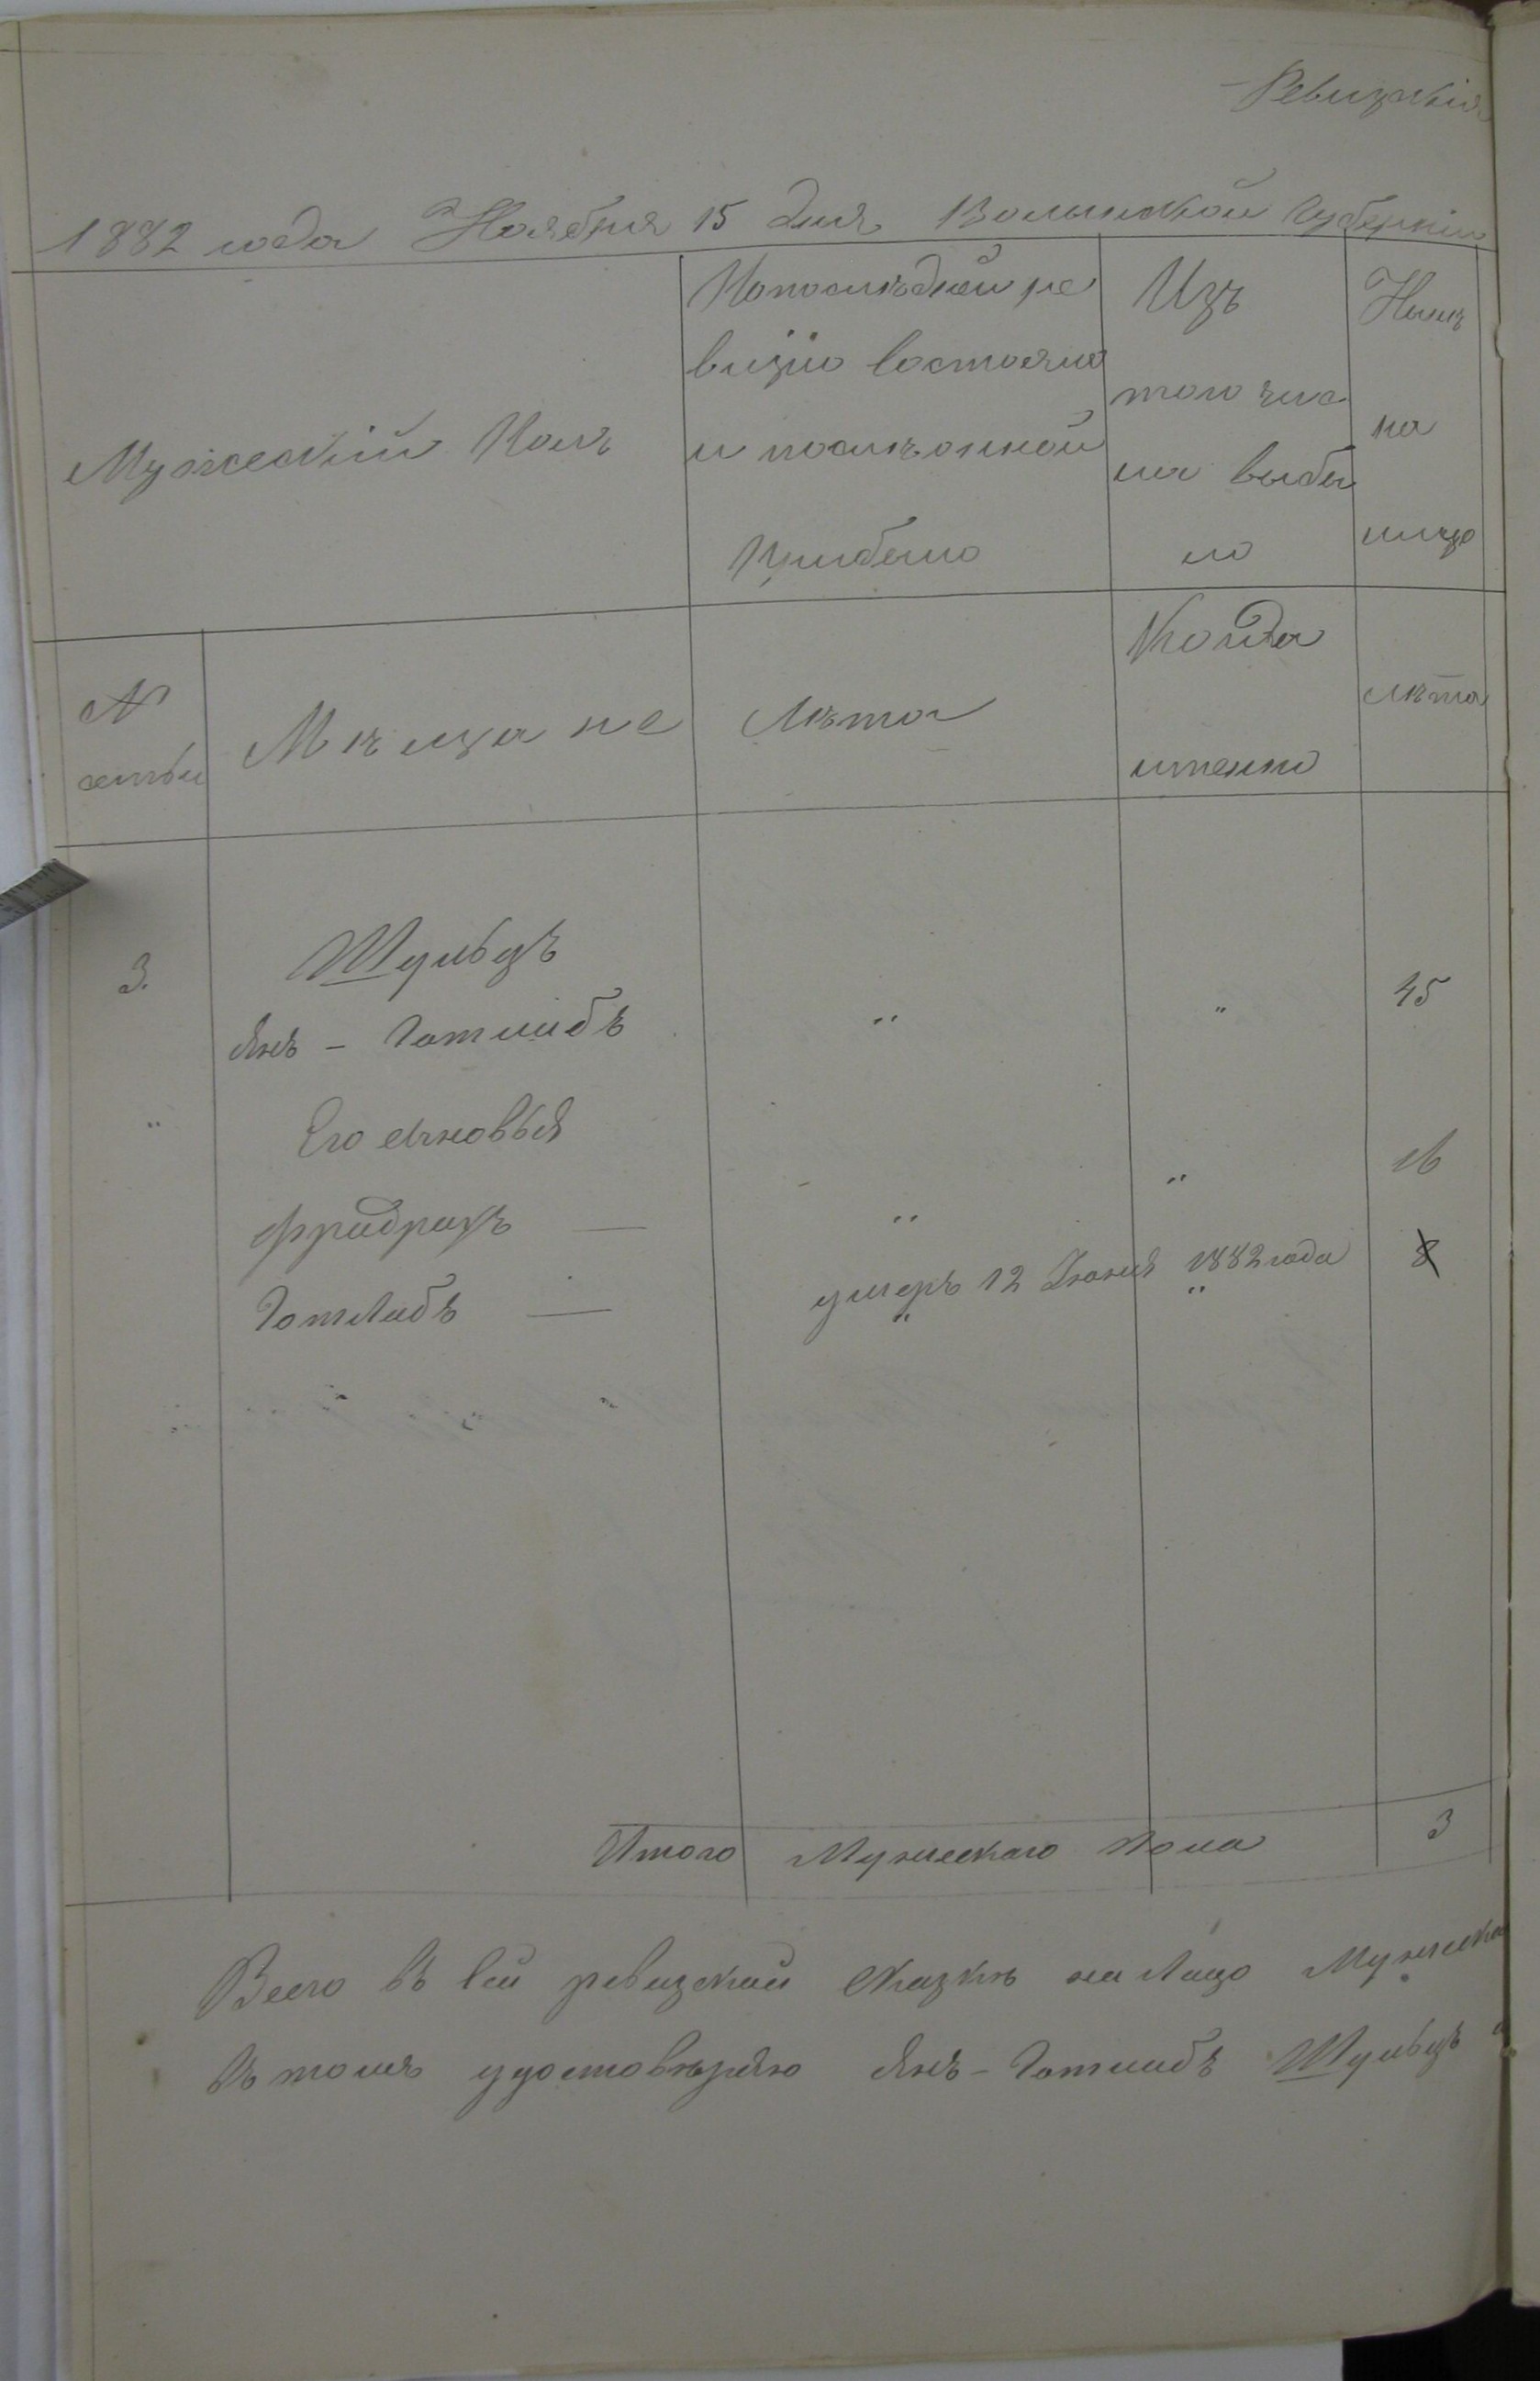 Ревизскія
1882 года Ноября 15 дня Волынской Губерніи
Мужескій Полъ
Попослѣдней ре
визіи состояло
и послѣ онной
Прибыло
Изъ
того чис
ла выбы
ло
Нынѣ
на
лицо
№
семьи
Мѣщане
Лѣта
Когда
именно
лѣта
3. Шульцъ
Янъ - Готлибъ " " 45
" Его сыновья
Фридрихъ — " " 16
Готлибъ — умеръ 12 Іюня 1882 года 8
" "
Итого Мужескаго Пола 3
Всего въ сей ревизской сказкѣ на Лицо Мужеска
Въ томъ удостовѣряю Янъ - Готлибъ Шульцъ